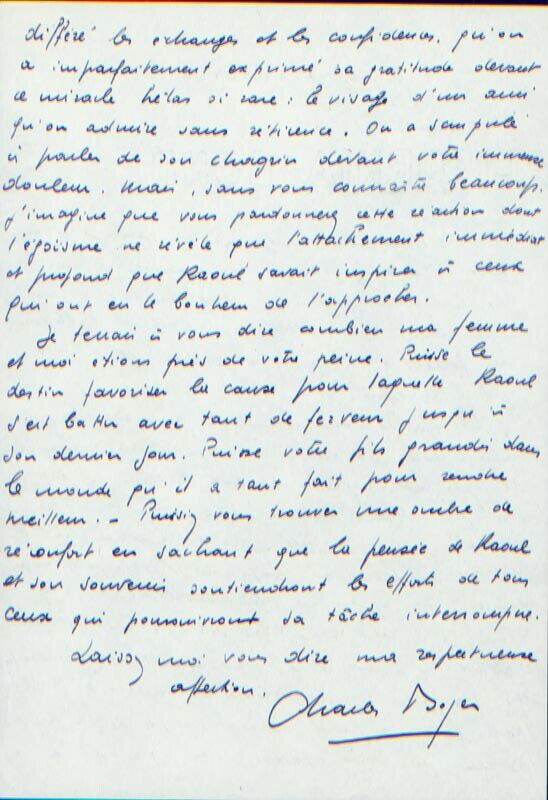 différé les échanges et les confidences, qu'on
a imparfaitement exprimé sa gratitude devant
ce miracle hélas si rare : le visage d'un ami
qu'on admire sans réticence. On a scrupule
à parler de son chagrin devant votre immense
douleur. Mais, sans vous connaître beaucoup,
j'imagine que vous pardonnerez cette réaction dont
l'égoïsme ne révèle que l'attachement immédiat
et profond que Raoul savait inspirer à ceux
qui ont eu le bonheur de l'approcher.
Je tenais à vous dire combien ma femme
et moi étions près de votre peine. Puisse le
destin favoriser la cause pour laquelle Raoul
s'est battu avec tant de ferveur jusqu'à
son dernier jour. Puisse votre fils grandir dans
le monde qu'il a tant fait pour rendre
meilleur. – Puissiez vous trouver une ombre de
réconfort en sachant que la pensée de Raoul
et son souvenir soutiendront les efforts de tous
ceux qui poursuivront sa tâche interrompue.
Laissez moi vous dire ma respectueuse
affection.
Charles Boyer